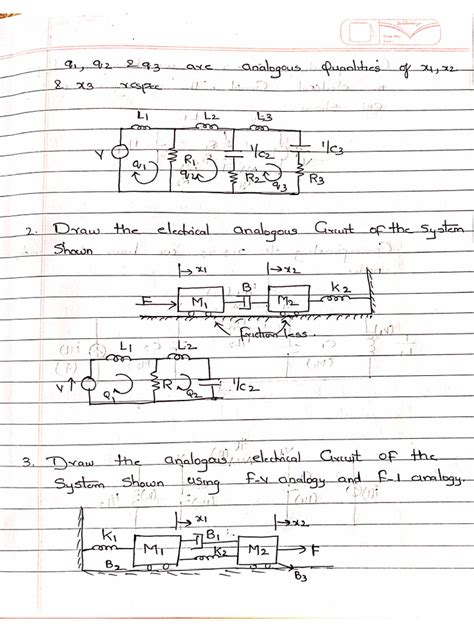 q1, q2 & q3 are analogous quantities of x1, x2
& x3 respec
L1 L2 L3
V q1 R1 q2 1/C2 R2 q3 1/C3 R3
2. Draw the electrical analogous Circuit of the System
Shown
x1 x2
F M1 B M2 K2
Frictionless.
L1 L2
V q1 R q2 1/C2
3. Draw the analogous electrical Circuit of the
System Shown using F-V analogy and F-I analogy.
x1 x2
K1 M1 B1 K2 M2 F
B2 B3